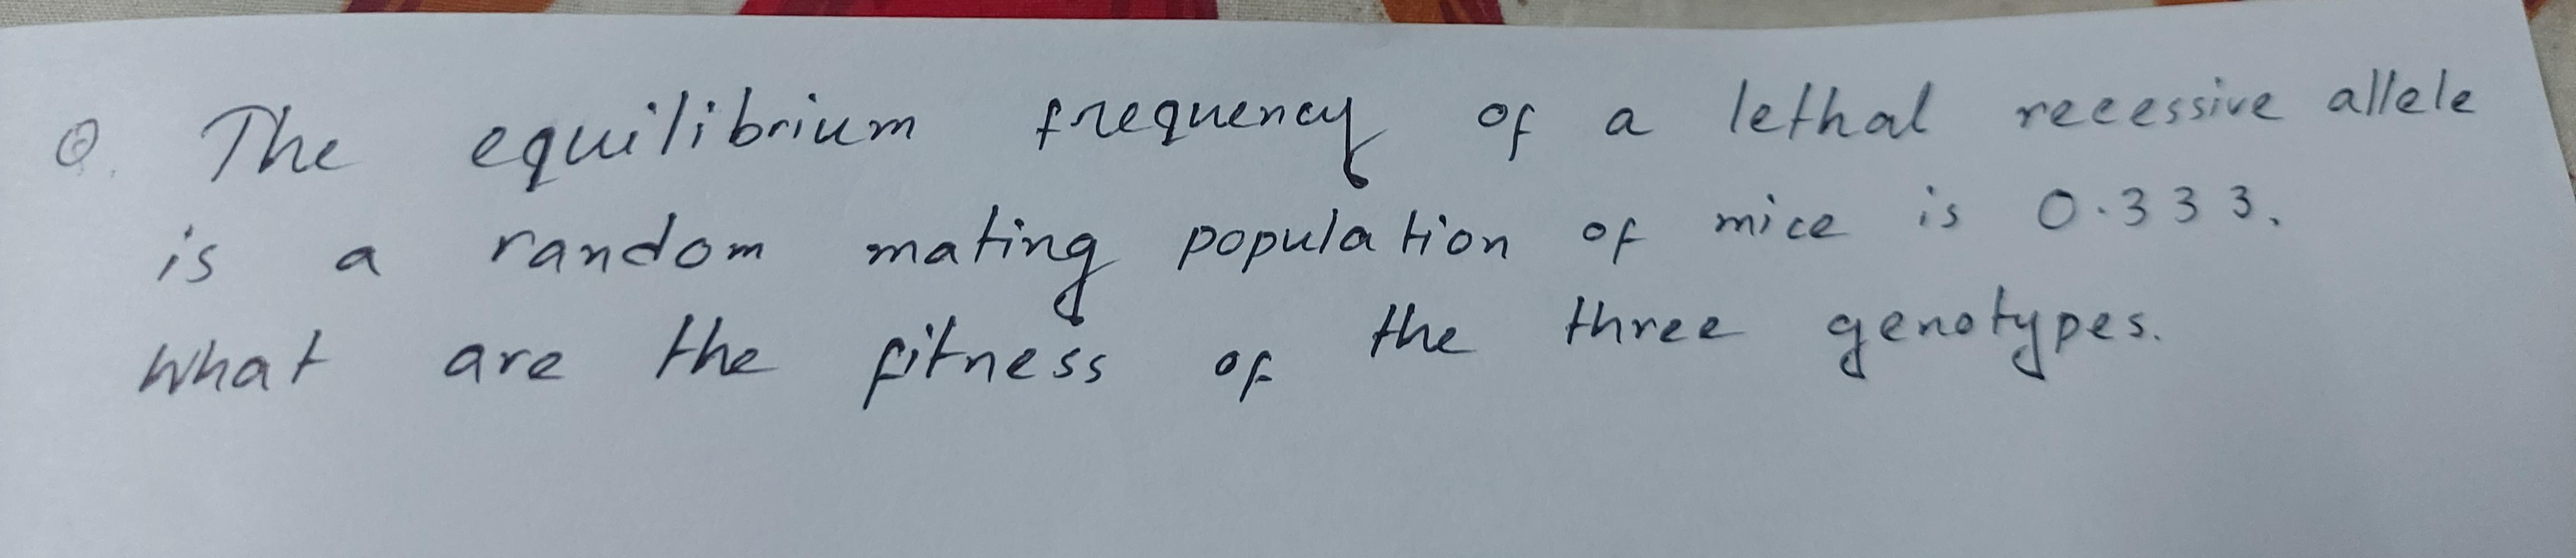 Q. The equilibrium frequency of a lethal recessive allele
is a random mating population of mice is 0.333.
What are the fitness of the three genotypes.